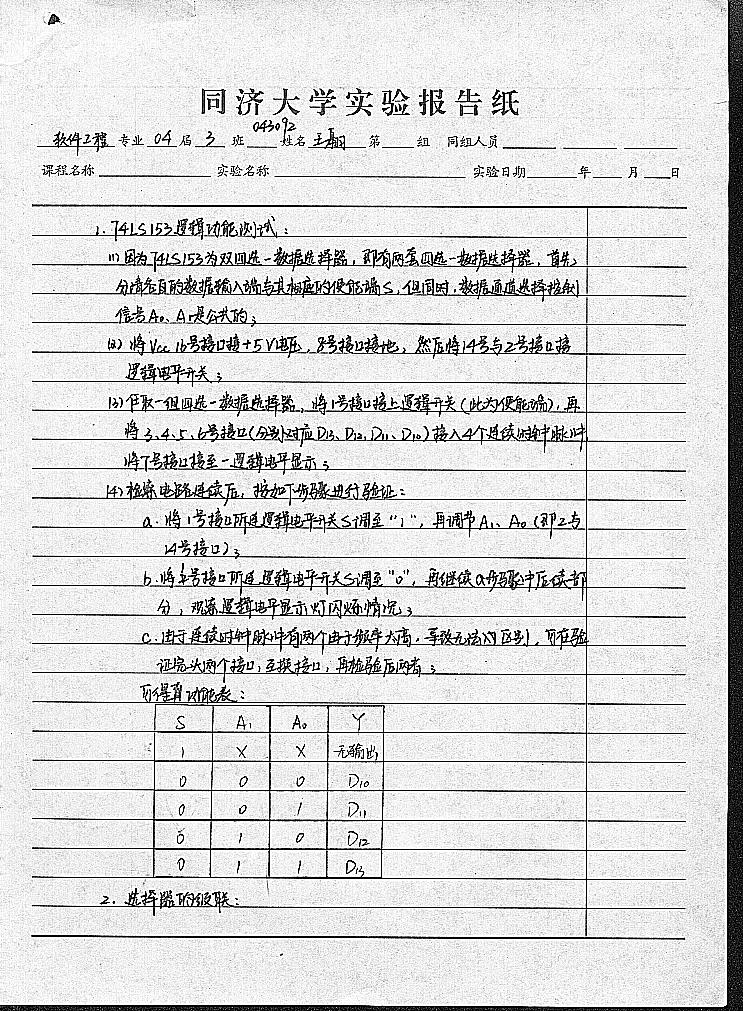 同济大学实验报告纸
043092
软件工程 专业 04 届 3 班 姓名 王 第 组 同组人员
课程名称 实验名称 实验日期 年 月 日
1. 74LS153逻辑功能测试：
(1) 因为74LS153为双四选一数据选择器，即有两套四选一数据选择器，首先，
分清各自的数据输入端与其相应的使能端S，但同时，数据通道选择控制
信号A0、A1是公共的；
(2) 将Vcc 16号接口接+5V电压，8号接口接地，然后将14号与2号接口接
逻辑电平开关；
(3) 任取一组四选一数据选择器，将1号接口接上逻辑开关(此为使能端)，再
将3、4、5、6号接口(分别对应D13、D12、D11、D10)接入4个连续时钟脉冲
将7号接口接至一逻辑电平显示；
(4) 检察电路连续后，按如下步骤进行验证：
a. 将1号接口所连逻辑电平开关S调至"1"，再调节A1、A0 (即2与
14号接口)；
b. 将1号接口所连逻辑电平开关S调至"0"，再继续a步骤中后续部
分，观察逻辑电平显示灯闪烁情况；
c. 由于连续时钟脉冲有两个由于频率太高，导致无法区别，可在验
证完头两个接口，互换接口，再检验后两者；
可得其功能表：
S A1 A0 Y
1 X X 无输出
0 0 0 D10
0 0 1 D11
0 1 0 D12
0 1 1 D13
2. 选择器的级联：